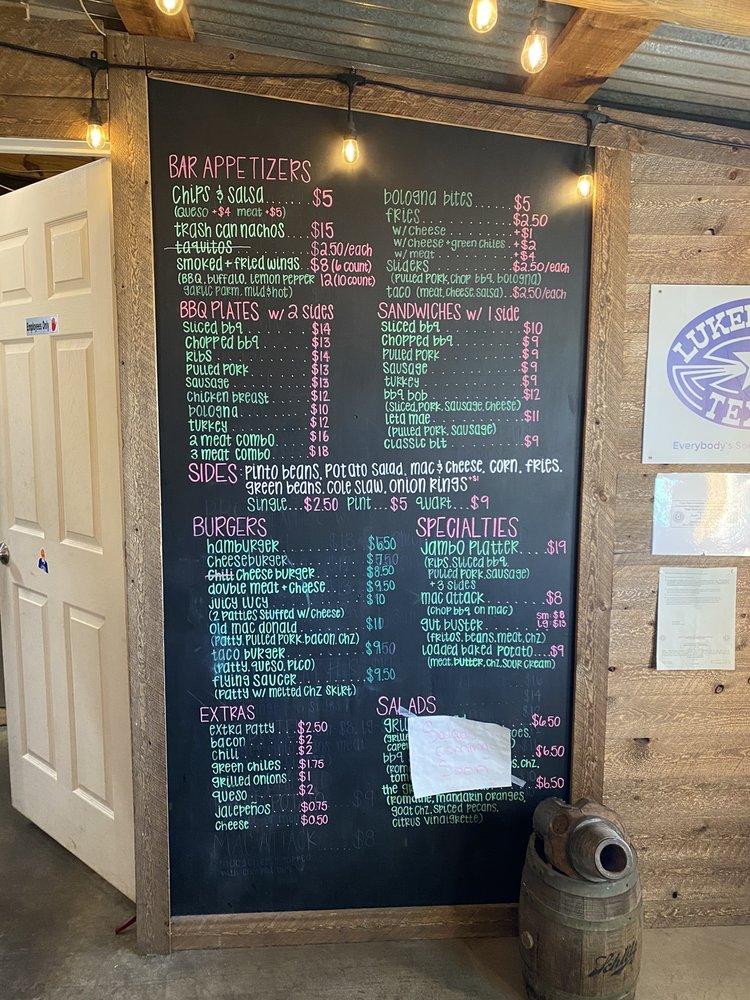 BAR APPETIZERS
CHIPS & SALSA.......$5
(QUESO +$4 MEAT +$5)
TRASH CAN NACHOS.....$15
TAQUITOS............$2.50/each
SMOKED + FRIED WINGS...$8 (6 COUNT)
(BBQ, BUFFALO, LEMON PEPPER 12 (10 COUNT)
GARLIC PARM, MILD & HOT)
BOLOGNA BITES......$5
FRIES..............$2.50
W/ CHEESE..........+$1
W/ CHEESE + GREEN CHILES.+$2
W/ MEAT............+$4
SLIDERS............$2.50/each
(PULLED PORK, CHOP BBQ, BOLOGNA)
TACO (MEAT, CHEESE, SALSA)..$2.50/each
BBQ PLATES W/ 2 SIDES
SLICED BBQ.........$14
CHOPPED BBQ........$13
RIBS...............$14
PULLED PORK........$13
SAUSAGE............$13
CHICKEN BREAST.....$12
BOLOGNA............$10
TURKEY.............$12
2 MEAT COMBO.......$16
3 MEAT COMBO.......$18
SANDWICHES W/ 1 SIDE
SLICED BBQ.........$10
CHOPPED BBQ........$9
PULLED PORK........$9
SAUSAGE............$9
TURKEY.............$9
BBQ BOB............$12
(SLICED, PORK, SAUSAGE, CHEESE)
LETA MAE...........$11
(PULLED PORK, SAUSAGE)
CLASSIC BLT........$9
SIDES: PINTO BEANS, POTATO SALAD, MAC & CHEESE, CORN, FRIES,
GREEN BEANS, COLE SLAW, ONION RINGS +$1
SINGLE...$2.50 PINT...$5 QUART...$9
BURGERS
HAMBURGER..........$6.50
CHEESEBURGER.......$7.50
CHILI CHEESE BURGER....$8.50
DOUBLE MEAT + CHEESE...$9.50
JUICY LUCY.........$10
(2 PATTIES STUFFED W/ CHEESE)
OLD MAC DONALD.....$11
(PATTY, PULLED PORK, BACON, CHZ)
TACO BURGER........$9.50
(PATTY, QUESO, PICO)
FLYING SAUCER......$9.50
(PATTY W/ MELTED CHZ SKIRT)
SPECIALTIES
JAMBO PLATTER......$19
(RIBS, SLICED BBQ,
PULLED PORK, SAUSAGE)
+ 3 SIDES
MAC ATTACK.........$8
(CHOP BBQ ON MAC)
GUT BUSTER......... SM: $8
LG: $13
(FRITOS, BEANS, MEAT, CHZ)
LOADED BAKED POTATO...$9
(MEAT, BUTTER, CHZ, SOUR CREAM)
EXTRAS
EXTRA PATTY...$2.50
BACON.........$2
CHILI.........$2
GREEN CHILES..$1.75
GRILLED ONIONS.$1
QUESO.........$2
JALEPEÑOS.....$0.75
CHEESE........$0.50
SALADS
$6.50
$6.50
BBQ
CHZ,
THE $6.50
(ROMAINE, MANDARIN ORANGES,
GOAT CHZ, SPICED PECANS,
CITRUS VINAIGRETTE)
Salads
Coming
Soon
MAC ATTACK......$8
Employees Only
LUKE
TE
Everybody's So
Schlitz